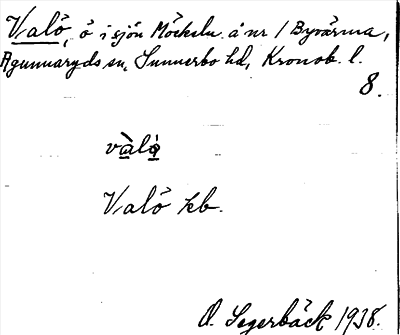 Valö, ö i sjön Möckeln å nr 1 Byvärma,
Agunnaryds sn, Sunnerbo hd, Kronob. l.
8.
Valö kb.
O. Segerbäck 1938.